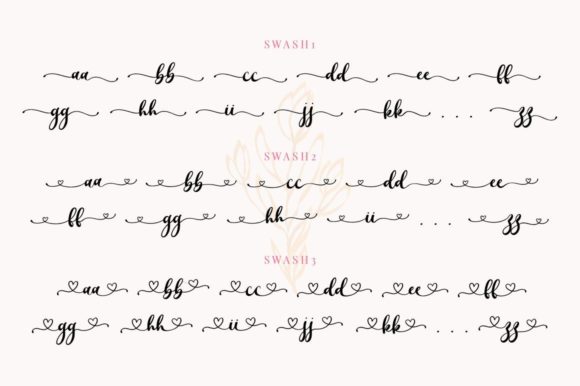 SWASH1
aa bb cc dd ee ff
gg hh ii jj kk . . . zz
SWASH2
aa bb cc dd ee
ff gg hh ii . . . zz
SWASH3
aa bb cc dd ee ff
gg hh ii jj kk . . . zz